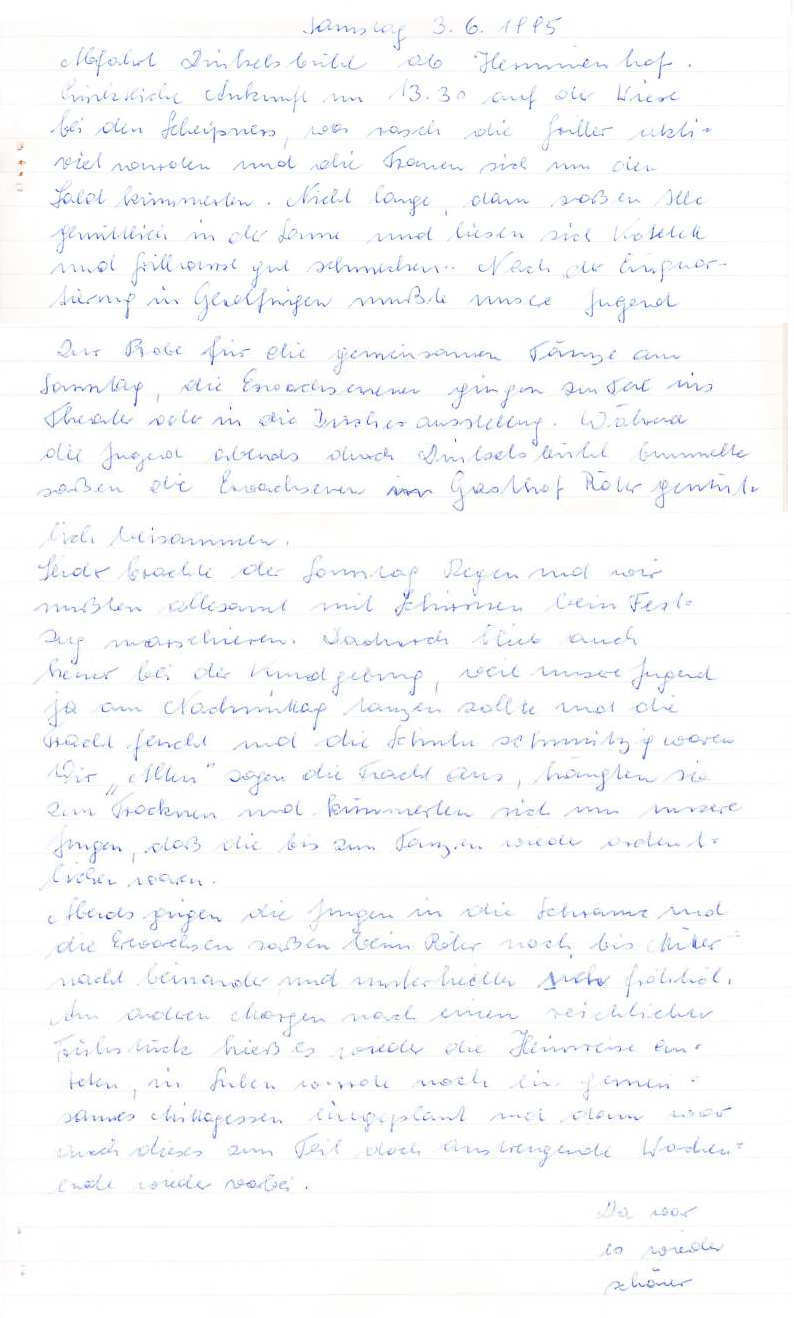 Samstag 3. 6. 1995
Abfahrt Dinkelsbühl ab Hemmenhof.
Ankunft um 13.30 auf der Wiese
bei den , wo rasch die Griller akti-
viert wurden und die Frauen sich um den
Salat kümmerten. Nicht lange, dann saßen Alle
gemütlich in der Sonne und liesen sich Kotelett
und Grillwurst gut schmecken. Nach der Einquar-
tierung in mußte unsere Jugend
Zur Probe für die gemeinsamen Tänze am
Sonntag, die Erwachsenen gingen zum Teil ins
Theater oder in die ausstellung. Während
die Jugend abends durch Dinkelsbühl bummelte
saßen die Erwachsenen im Gasthof gemüt-
lich beisammen.
Leider brachte der Sonntag Regen und wir
mußten allesamt mit Schirmen beim Fest-
zug marschieren. Dadurch blieb auch
keiner bei der Kundgebung, weil unsere Jugend
ja am Nachmittag tanzen sollte und die
Tracht feucht und die Schuhe schmutzig waren
Wir „Alten" zogen die Tracht aus, hängten sie
zum Trocknen und kümmerten sich um unsere
Jungen, daß die bis zum Tanzen wieder ordent-
licher waren.
Abends gingen die Jungen in die Schranne und
die Erwachsen saßen beim noch bis Mitter=
nacht beinander und unterhielten sich fröhlich.
Am anderen Morgen nach einen reichlichen
Frühstück hieß es wieder die Heimreise an-
treten, in Suben wurde noch ein gemein-
sames Mittagessen eingeplant und dann war
auch dieses zum Teil doch anstrengende Wochen=
ende wieder vorbei.
Da war
es wieder
schöner